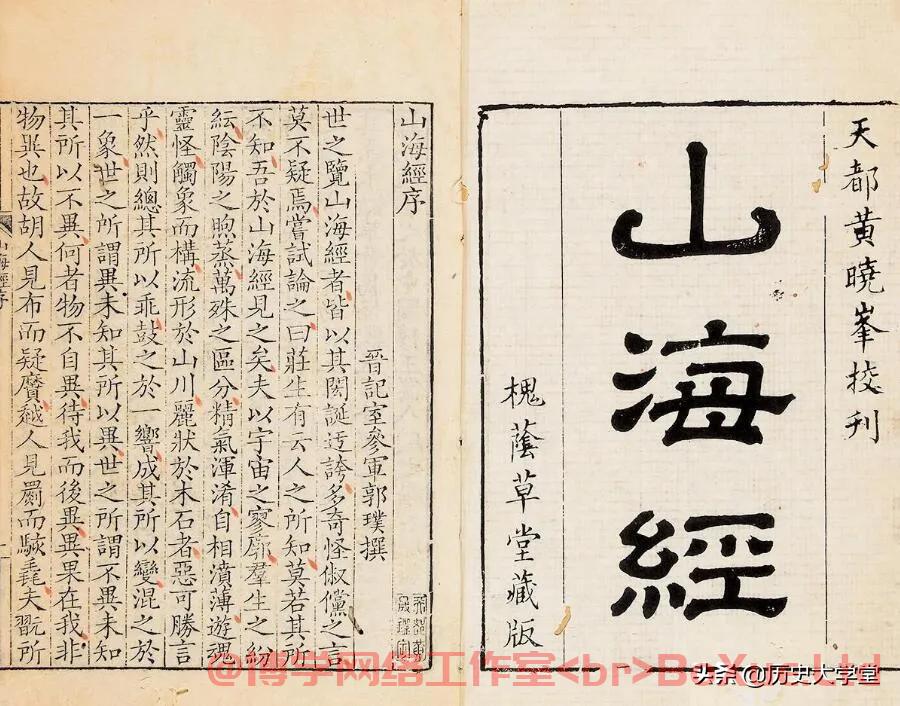 天都黄曉峯挍刊
山海經
槐蔭草堂藏版
山海經序
晉記室參軍郭璞撰
世之覽山海經者皆以其閎誕迃誇多奇怪俶儻之言
莫不疑焉嘗試論之曰莊生有云人之所知莫若其所
不知吾於山海經見之矣夫以宇宙之寥廓羣生之紛
紜陰陽之煦蒸萬殊之區分精氣渾淆自相濆薄遊魂
靈怪觸象而構流形於山川麗狀於木石者惡可勝言
乎然則總其所以乖鼓之於一響成其所以變混之於
一象世之所謂異未知其所以異世之所謂不異未知
其所以不異何者物不自異待我而後異異果在我非
物異也故胡人見布而疑黂越人見罽而駭毳夫翫所
山海經序
@博学网络工作室<br>BoXue Ltd
头条 @历史大学堂